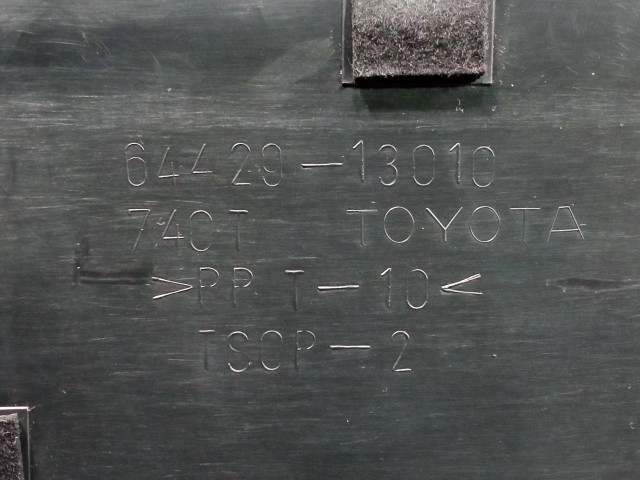 64429-13010
74CT TOYOTA
>PP T-10<
TSOP-2